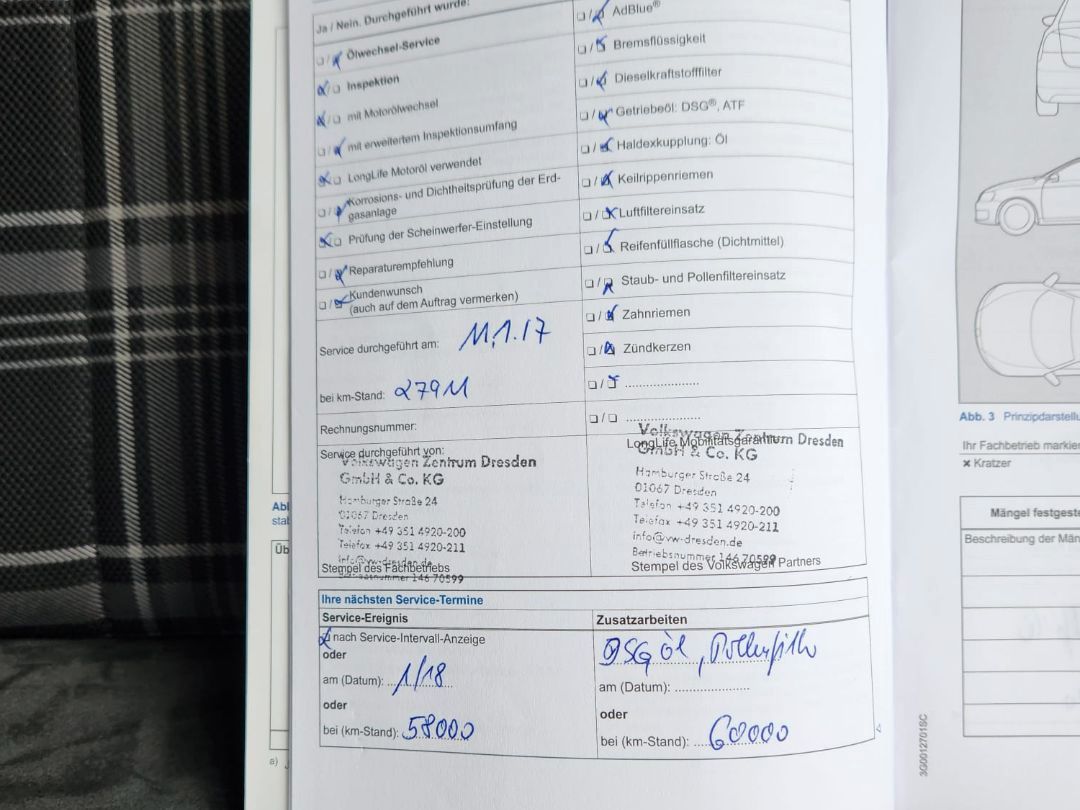 Ja / Nein. Durchgeführt wurde:
Ölwechsel-Service
Inspektion
mit Motorölwechsel
mit erweitertem Inspektionsumfang
LongLife Motoröl verwendet
Korrosions- und Dichtheitsprüfung der Erd-
gasanlage
Prüfung der Scheinwerfer-Einstellung
Reparaturempfehlung
Kundenwunsch
(auch auf dem Auftrag vermerken)
Service durchgeführt am: 11.1.17
bei km-Stand: 27911
Rechnungsnummer:
Service durchgeführt von:
Volkswagen Zentrum Dresden
GmbH & Co. KG
Hamburger Straße 24
01067 Dresden
Telefon +49 351 4920-200
Telefax +49 351 4920-211
info@vw-dresden.de
Stempel des Fachbetriebs
Betriebsnummer 146 70599
AdBlue®
Bremsflüssigkeit
Dieselkraftstofffilter
Getriebeöl: DSG®, ATF
Haldexkupplung: Öl
Keilrippenriemen
Luftfiltereinsatz
Reifenfüllflasche (Dichtmittel)
Staub- und Pollenfiltereinsatz
Zahnriemen
Zündkerzen
Volkswagen Zentrum Dresden
LongLife Mobilitätsgarantie
GmbH & Co. KG
Hamburger Straße 24
01067 Dresden
Telefon +49 351 4920-200
Telefax +49 351 4920-211
info@vw-dresden.de
Betriebsnummer 146 70599
Stempel des Volkswagen Partners
Ihre nächsten Service-Termine
Service-Ereignis
nach Service-Intervall-Anzeige
oder
am (Datum): 1/18
oder
bei (km-Stand): 58000
Zusatzarbeiten
DSG öl, Pollenfilter
am (Datum): ....................
oder
bei (km-Stand): 60000
Abb. 3 Prinzipdarstellu
Ihr Fachbetrieb markier
× Kratzer
Mängel festgeste
Beschreibung der Män
3G0012701SC
Abl
stab
Üb
a)